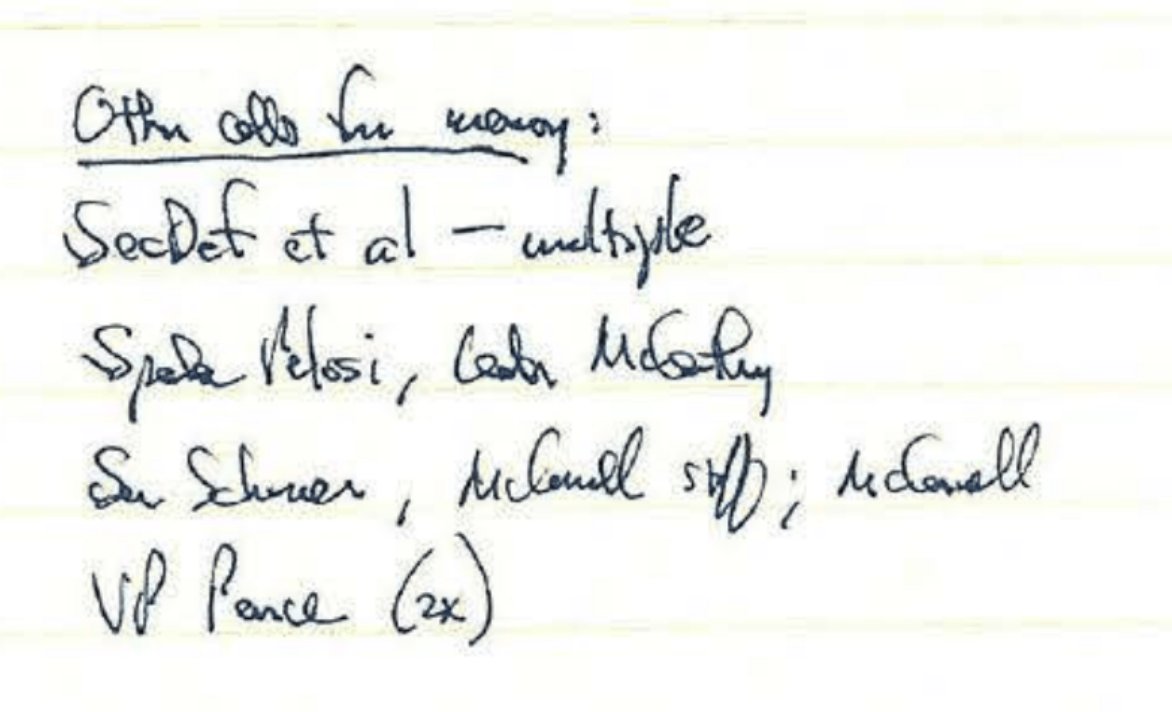 Other calls from memory:
SecDef et al – multiple
Speaker Pelosi, Leader McCarthy
Sen Schumer, McConnell staff; McConnell
VP Pence (2x)